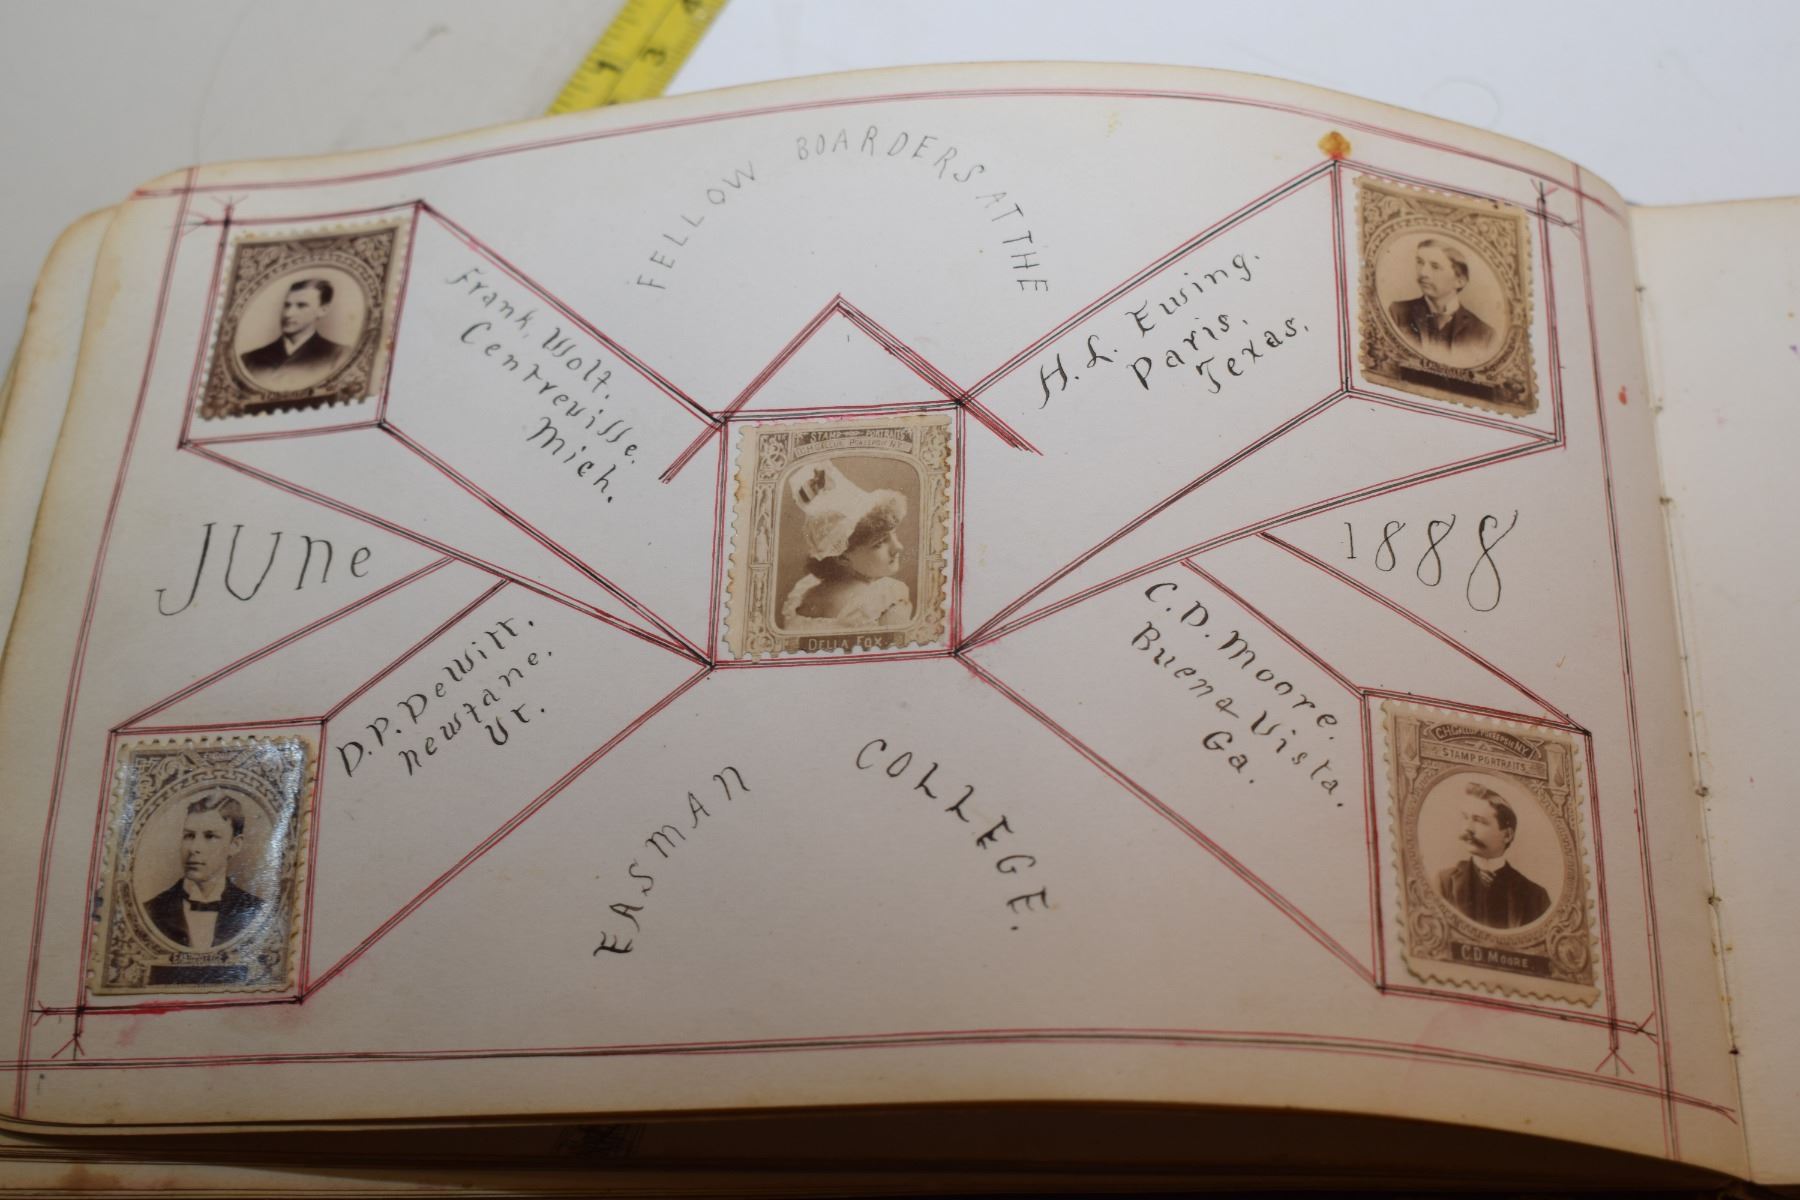 FELLOW BOARDERS AT THE
Frank. Wolf.
Centrevisse.
Mich.
H. L. Ewing.
Paris.
Texas.
STAMP PORTRAITS
DELLA FOX.
JUNE
1888
D. P. DeWitt.
Newfane.
Vt.
C. D. Moore.
Buena Vista.
Ga.
STAMP PORTRAITS
C.D. MOORE.
EASMAN COLLEGE.
1
3